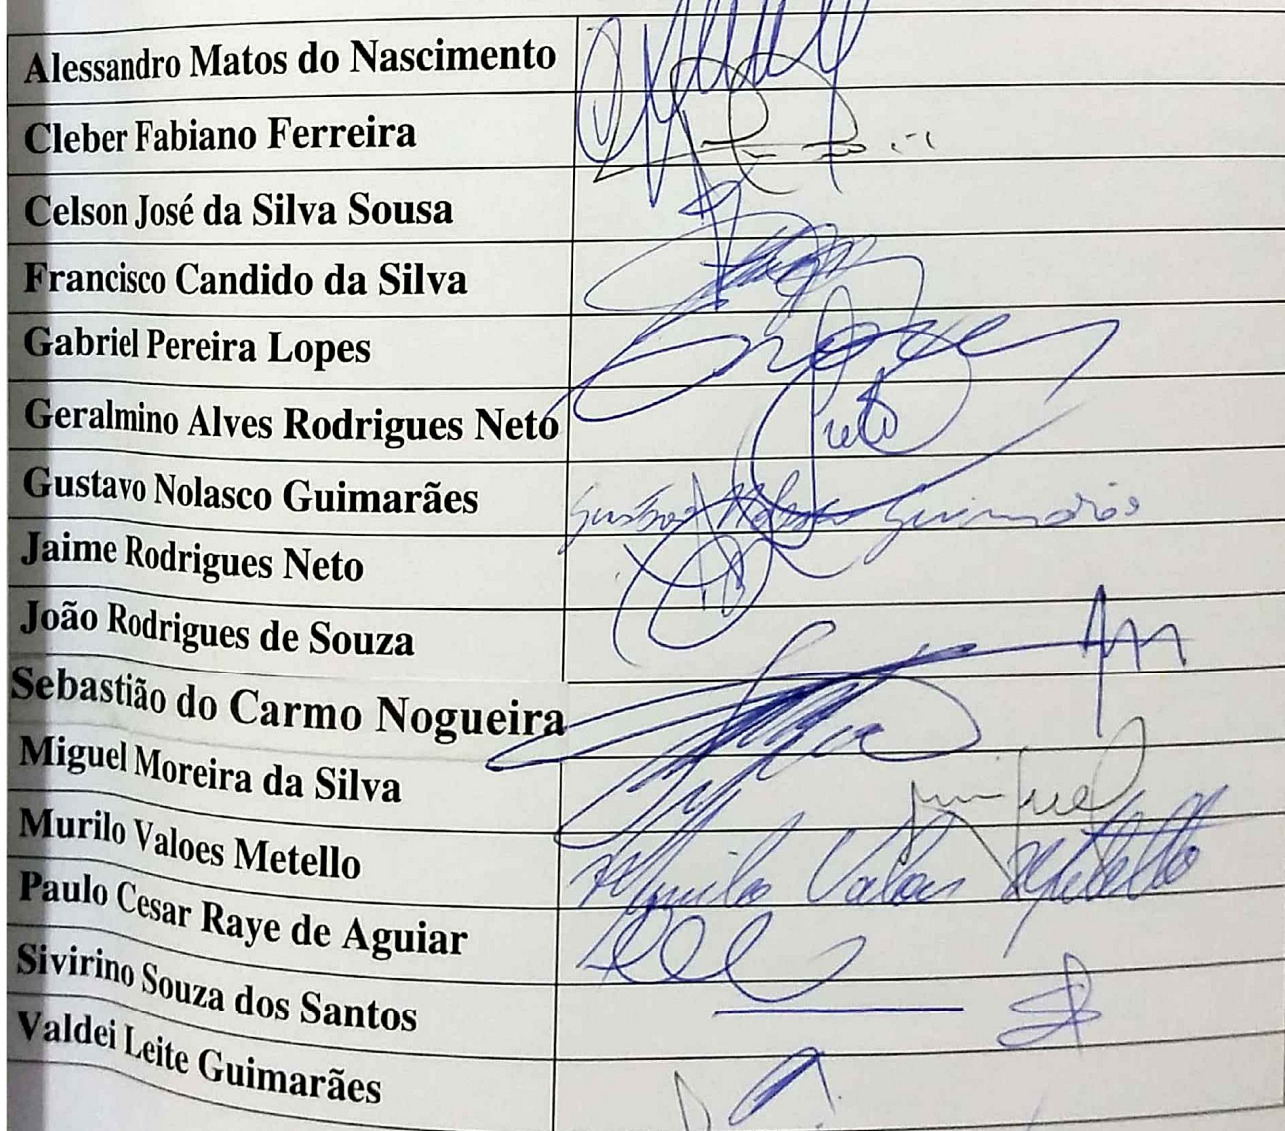 Alessandro Matos do Nascimento
Cleber Fabiano Ferreira
Celson José da Silva Sousa
Francisco Candido da Silva
Gabriel Pereira Lopes
Geralmino Alves Rodrigues Neto
Neto
Gustavo Nolasco Guimarães
Gustavo Nolasco Guimarães
Jaime Rodrigues Neto
João Rodrigues de Souza
Sebastião do Carmo Nogueira
Miguel Moreira da Silva
Miguel
Murilo Valoes Metello
Murilo Valoes Metello
Paulo Cesar Raye de Aguiar
Sivirino Souza dos Santos
Valdei Leite Guimarães